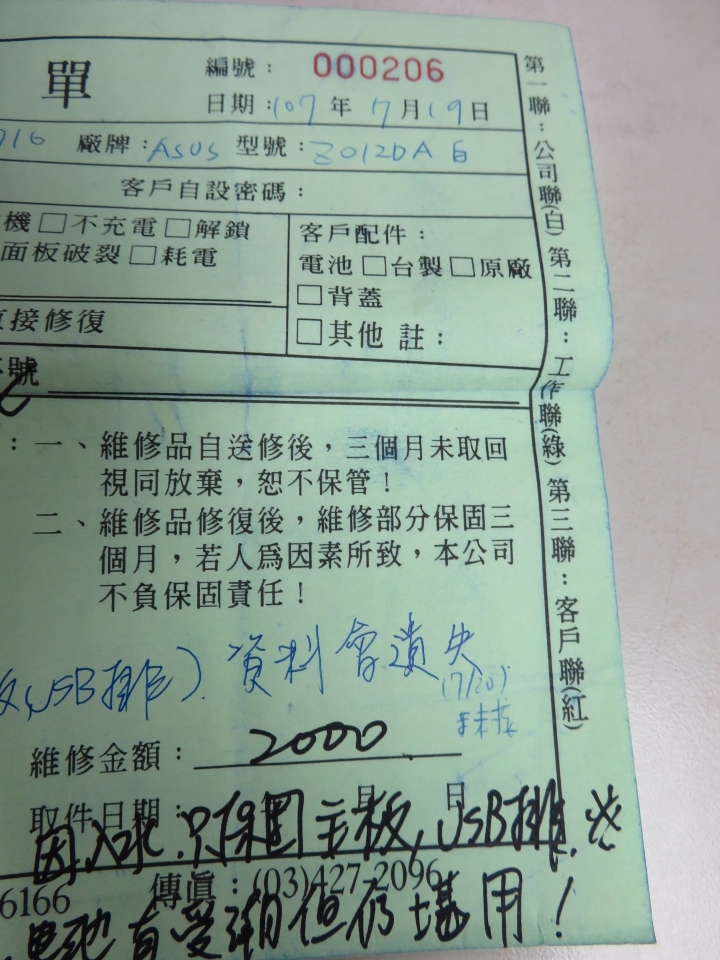 單
編號： 000206
日期：107年7月19日
716 廠牌：ASUS 型號：Z012DA 白
客戶自設密碼：
機□不充電□解鎖
面板破裂□耗電
客戶配件：
電池□台製□原廠
□背蓋
□其他 註：
直接修復
號
：一、維修品自送修後，三個月未取回
視同放棄，恕不保管！
二、維修品修復後，維修部分保固三
個月，若人為因素所致，本公司
不負保固責任！
USB排) 資料會遺失
(7/20)
未接
維修金額： 2000
取件日期： 年 月 日
因入水，只保固主板，USB排.
6166 傳真：(03)427-2096
電池有受潮但仍堪用！
第一聯：公司聯(白) 第二聯：工作聯(綠) 第三聯：客戶聯(紅)